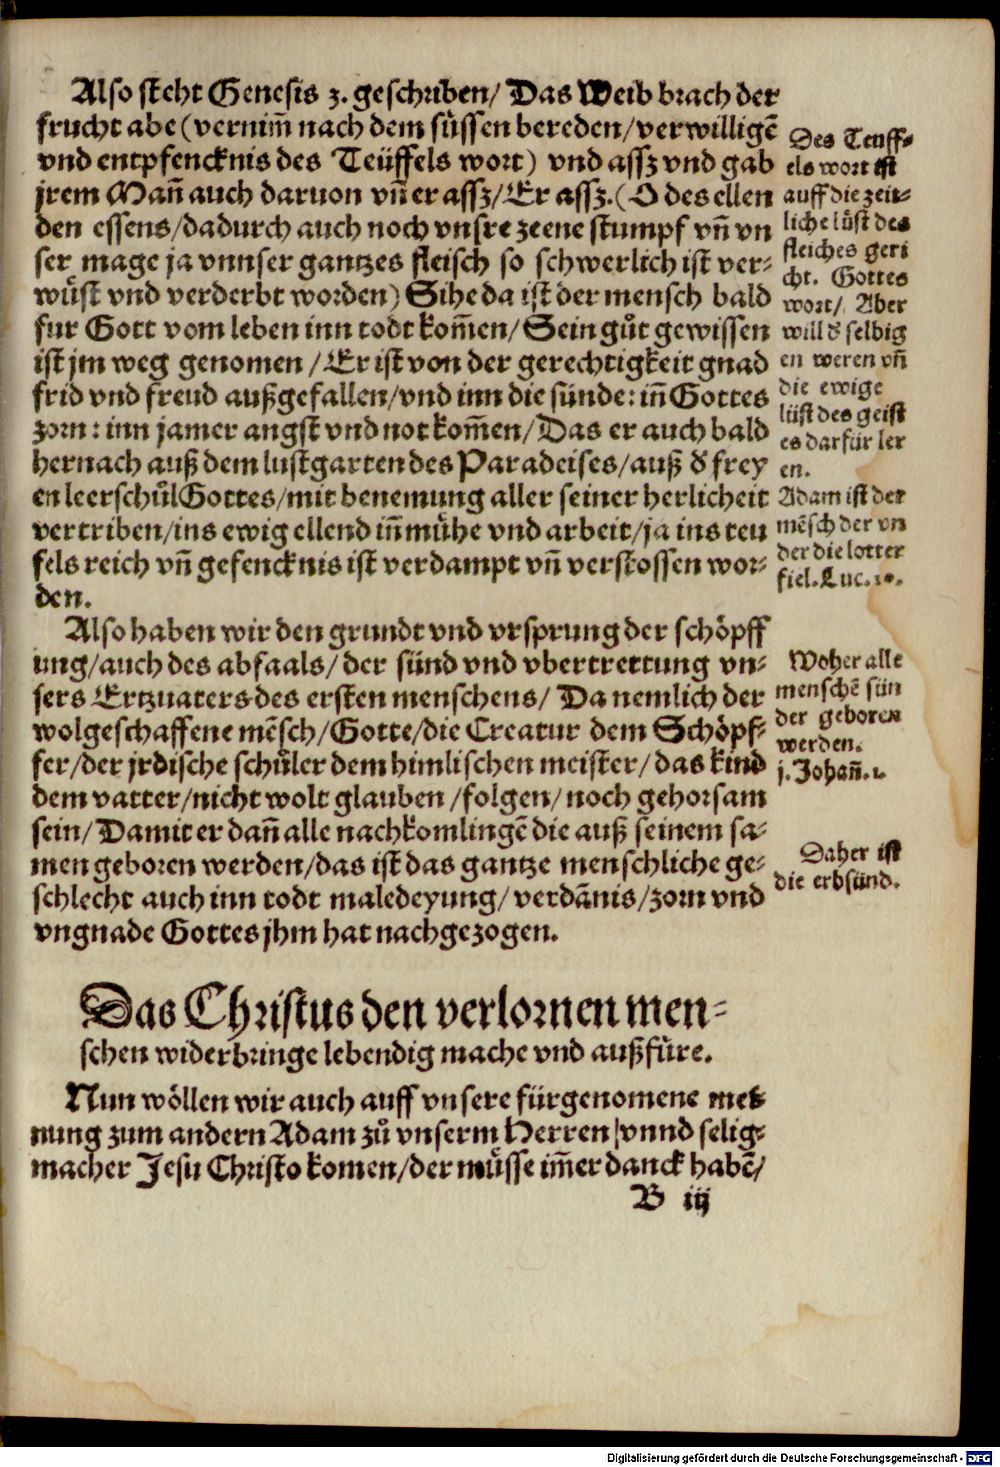 Also steht Genesis 3. geschriben/ Das Weib brach der
frucht abe (vernim̃ nach dem süssen bereden/ verwilligẽ
vnd entpfencknis des Teüffels wort) vnd assz vnd gab
jrem Mañ auch daruon vñ er assz/ Er assz. (O des ellen
den essens/ dadurch auch noch vnsre zeene stumpf vñ vn
ser mage ja vnnser gantzes fleisch so schwerlich ist ver-
wüst vnd verderbt worden) Sihe da ist der mensch bald
fur Gott vom leben inn todt kom̃en/ Sein gůt gewissen
ist jm weg genomen / Er ist von der gerechtigkeit gnad
frid vnd freud außgefallen/ vnd inn die sünde: iñ Gottes
zorn: inn jamer angst vnd not kom̃en/ Das er auch bald
hernach auß dem lustgarten des Paradeises/ auß d̕ frey
en leerschůl Gottes/ mit benemung aller seiner herlicheit
vertriben/ ins ewig ellend iñ mühe vnd arbeit/ ja ins teu
fels reich vñ gefencknis ist verdampt vñ verstossen wor-
den.
Des Teuff-
els wort ist
auff die zeit-
liche lüst des
fleiches geri
cht. Gottes
wort/ Aber
will d̕ selbig
en weren vñ
die ewige
lüst des geist
es darfür ler
en.
Adam ist der
mẽsch der vn
der die lotter
fiel. Luc. 10.
Also haben wir den grundt vnd vrsprung der schöpff
ung/ auch des abfaals/ der sünd vnd vbertrettung vn-
sers Ertzuaters des ersten menschens/ Da nemlich der
wolgeschaffene mẽsch/ Gotte/ die Creatur dem Schöpf-
fer/ der jrdische schůler dem himlischen meister/ das kind
dem vatter/ nicht wolt glauben / folgen/ noch gehorsam
sein/ Damit er dañ alle nachkomlingẽ die auß seinem sa-
men geboren werden/ das ist das gantze menschliche ge-
schlecht auch inn todt maledeyung/ verdãnis/ zorn vnd
vngnade Gottes jhm hat nachgezogen.
Woher alle
menschẽ sün
der geboren
werden.
j. Johañ. 1.
Daher ist
die erbsünd.
Das Christus den verlornen men-
schen widerbringe lebendig mache vnd außfüre.
Nun wöllen wir auch auff vnsere fürgenomene mei-
nung zum andern Adam zů vnserm Herren/ vnnd selig-
macher Jesu Christo komen/ der müsse im̃er danck habẽ/
B iij
Digitalisierung gefördert durch die Deutsche Forschungsgemeinschaft - DFG